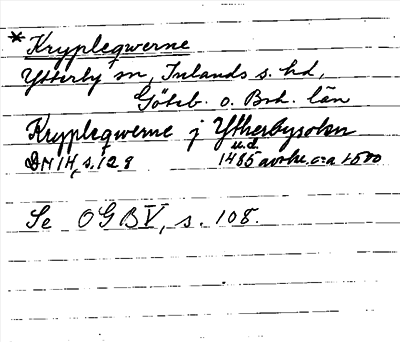 *Krypleqwerne
Ytterby sn, Inlands s. hd,
Göteb. o. Boh. län
Krypleqwerne j Ytherbysokn
DN 14, s. 128
u.d.
1485 avskr. ca 1500
Se OGB V, s. 108.